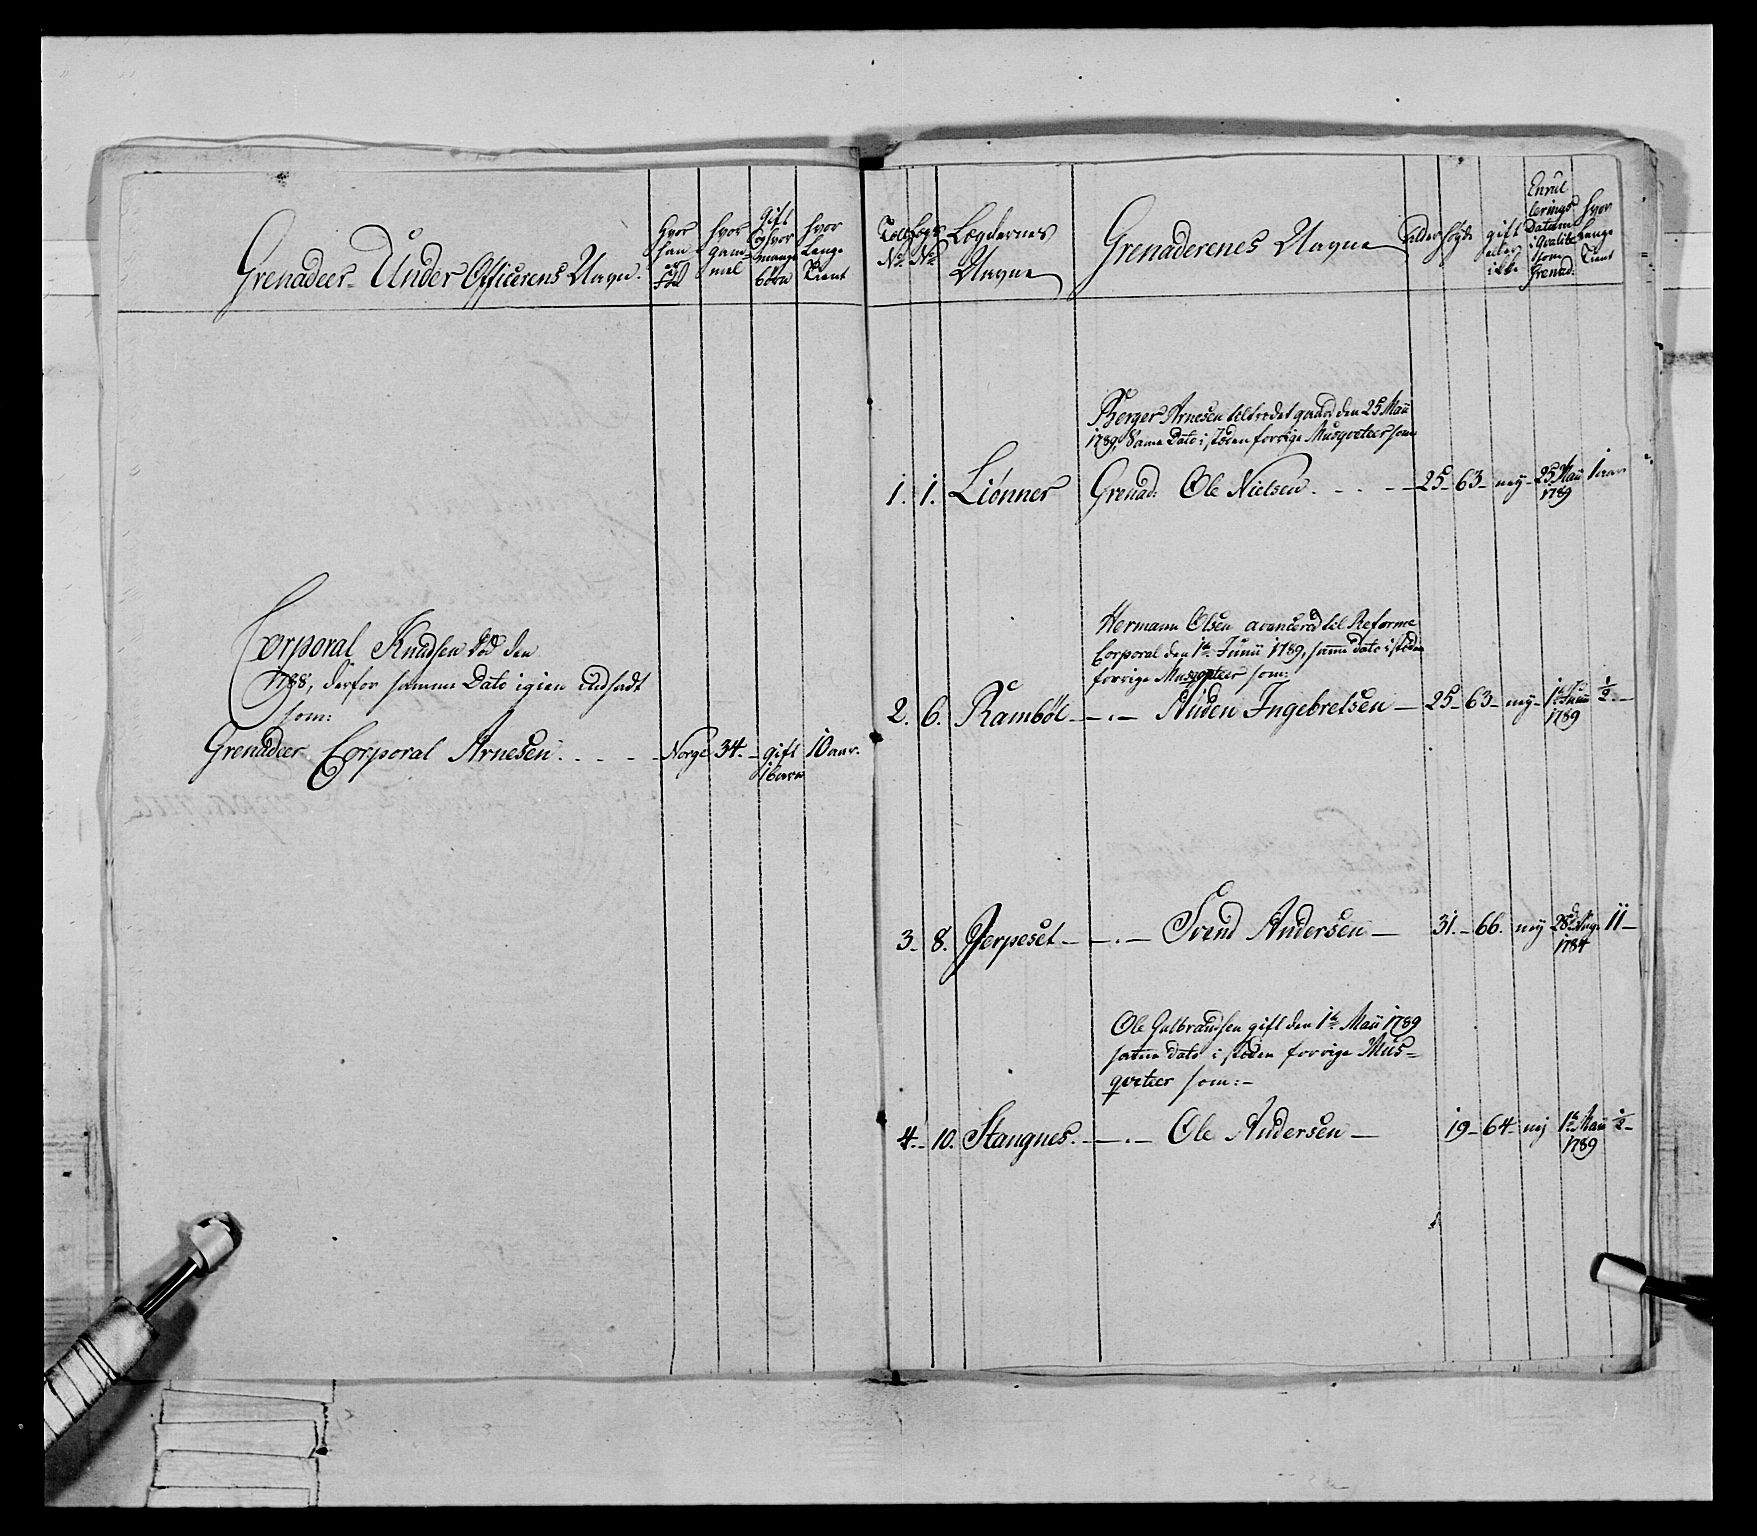 Grenadeer-Under Officerens Navn.
hvor
han
er
Fød
hvor
gam-
mel
gift
og hvor
mange
børn
hvor
Lenge
Tient
Corporal Knudsen død den
1788, derfor samme Dato igien indsadt
som:
Grenadeer Corporal Arnesen . . . . - Norge 34. - gift 10 aar.
1 barn
No.
Legds
No.
Lægdernes
Navne
Grenaderenes Navne
Alder
høyde
gift
eller
ikke
Enrul
lerings
Datum
i Qvalite
som
Grenad:
hvor
Lenge
Tient
Berger Arnesen tiltredet gaard den 25 Maii
1789, Same Dato i steden forrige Musqveteer som
1. 1. Liønner Grenad: Ole Nielsen. - . - - 25 - 63 - ney - 25 Maii 1 aar
1789
Hermann Olsen avancered til Reforme
Corporal den 1te Junii 1789, samme dato i steden
forrige Musqveteer som:
2. 6. Rambøl - - . - Auden Ingebretsen - 25 - 63 - ney - 1te Junii ½ -
1789
3. 8. Jerpeset - - . - Svend Andersen - 31. - 66. ney 28de Aug. 11 -
1784
Ole Gulbrandsen gift den 1te Maii 1789
samme dato i steden forrige Mus=
qveteer som: -
4. - 10. Stangnes. - - . - Ole Andersen - 19 - 64 - nej 1te Maii ½ -
1789